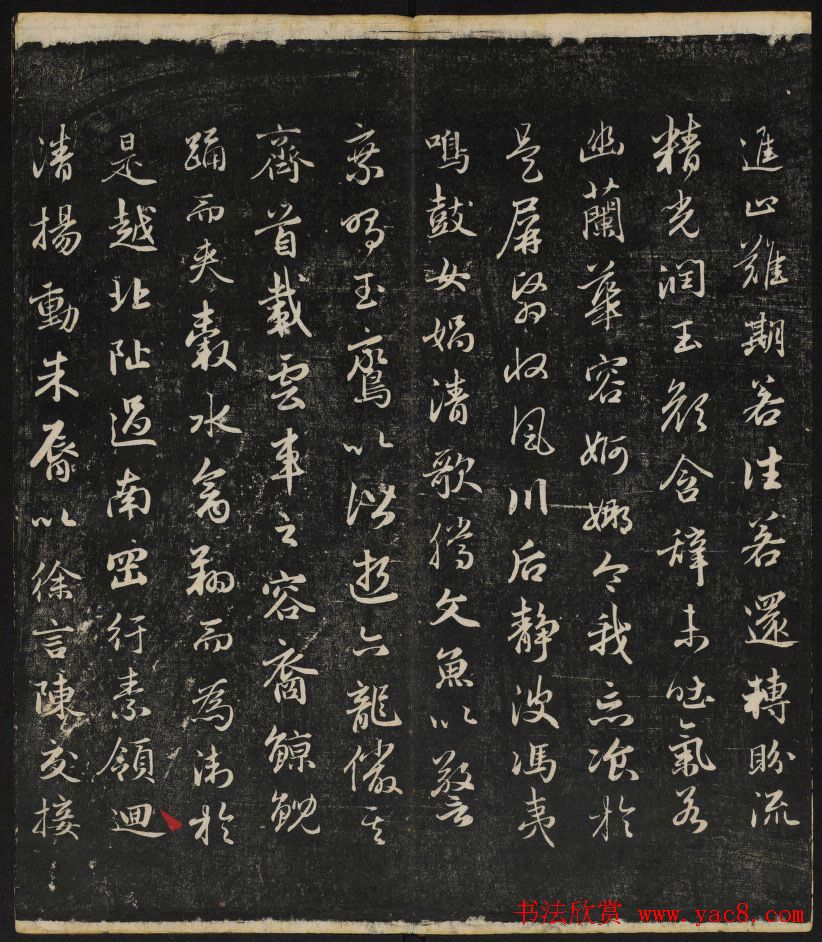 進止難期若往若還轉盼流
精光潤玉顏含辭未吐氣若
幽蘭華容婀娜令我忘飡於
是屏翳收風川后靜波馮夷
鳴鼓女媧清歌騰文魚以警
乘鳴玉鸞以偕逝六龍儼其
齊首載雲車之容裔鯨鯢
踊而夾轂水禽翔而為衛於
是越北阯過南岡紆素領迴
清揚動朱脣以徐言陳交接
书法欣赏 www.yac8.com